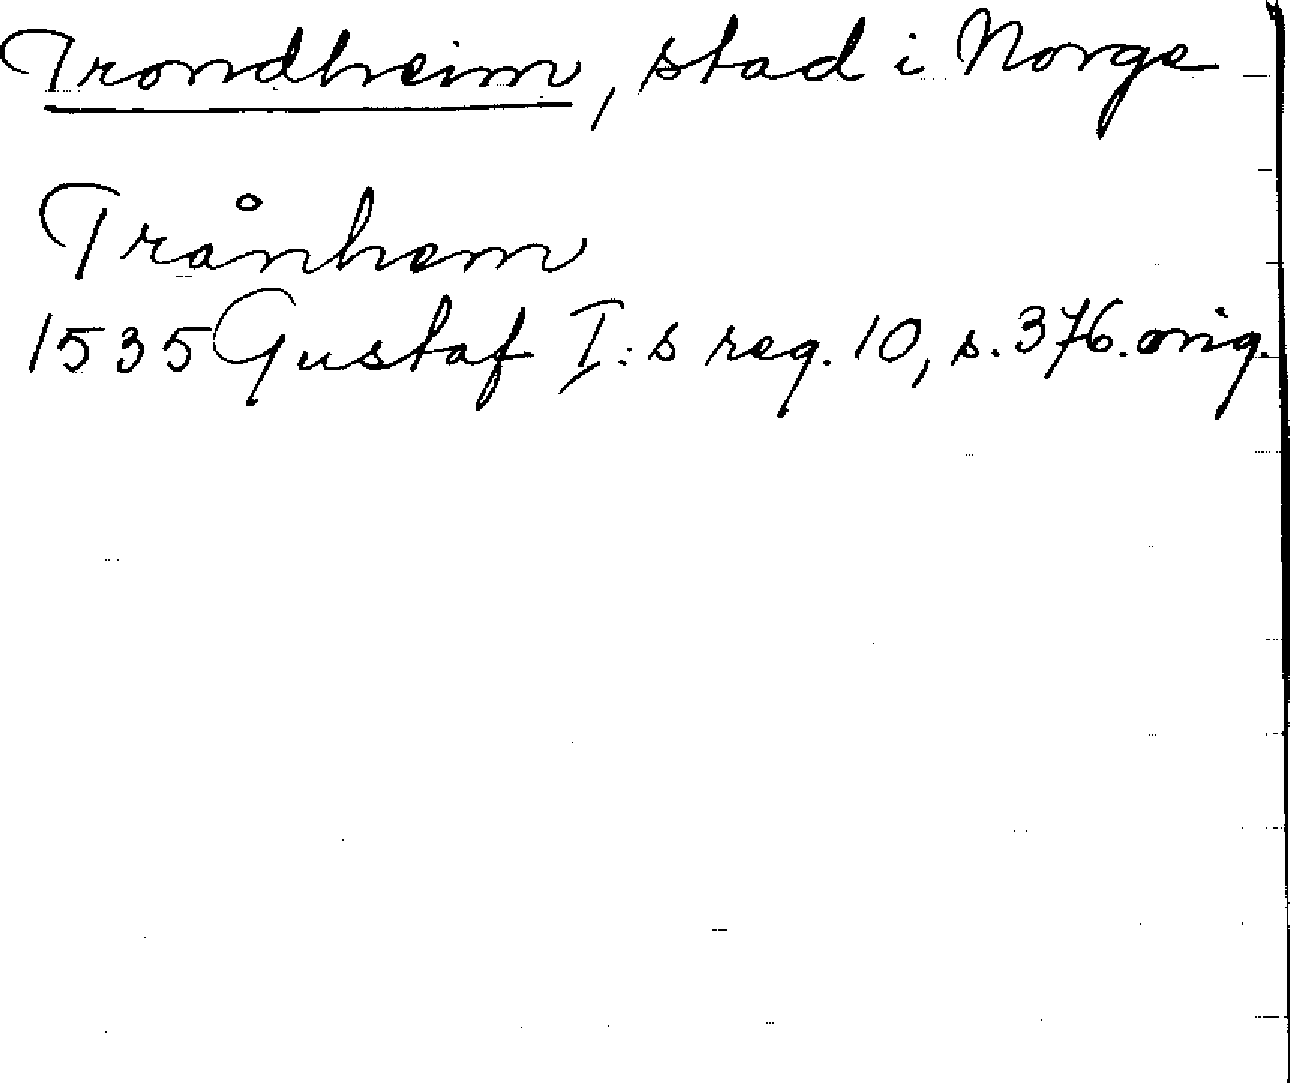 Trondheim, stad i Norge
Trånhem
1535 Gustaf I:s reg. 10, s. 376. orig.